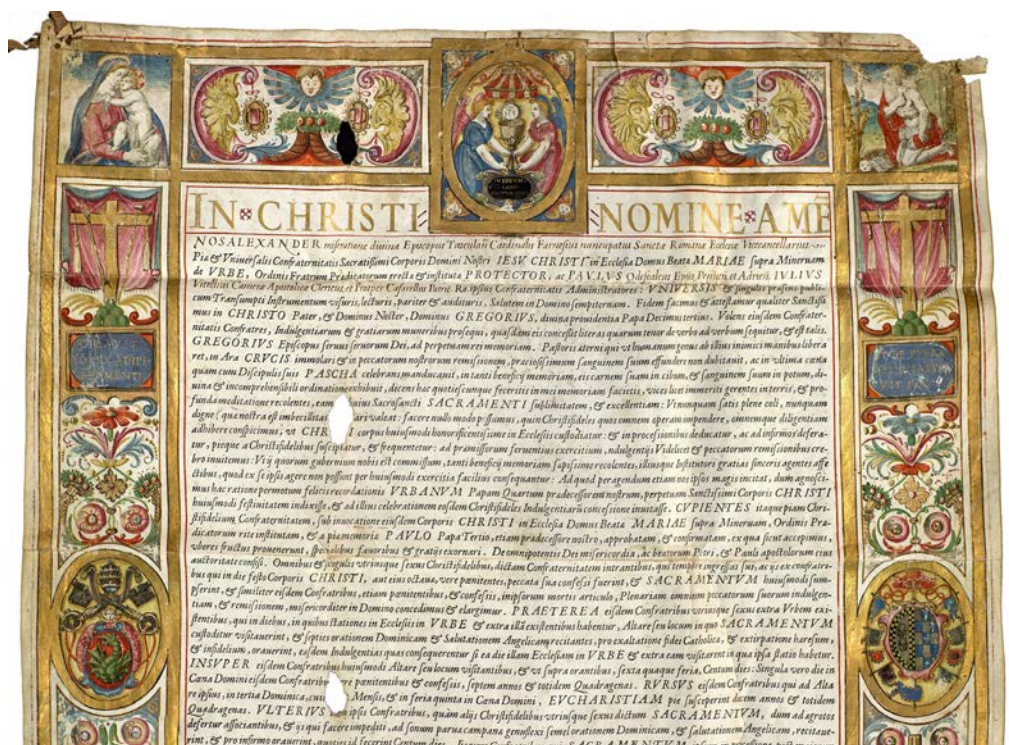 IN CHRISTI NOMINE AMĒ
NOS ALEXANDER miseratione diuina Episcopus Tusculañ Cardinalis Farnesius nuncupatus Sanctæ Romanæ Ecclesiæ Vicecancellarius
Piæ & Vniuersalis Confraternitatis Sacratissimi Corporis Domini Nostri IESV CHRISTI in Ecclesia Domus Beatæ MARIAE supra Mineruam
de VRBE, Ordinis Fratrum Prædicatorum erectæ & institutæ PROTECTOR, ac PAVLVS Odescalcus Epūs et IVLIVS
Vitellius Cameræ Apostolicæ Clericus et Prosper Caffarellus ipsius Confraternitatis Administratores: VNIVERSIS & singulis præsens publi-
cum Transumpti Instrumentum visuris, lecturis, pariter & audituris, Salutem in Domino sempiternam. Fidem facimus & attestamur qualiter Sanctissi
mus in CHRISTO Pater, & Dominus Noster, Dominus GREGORIVS, diuina prouidentia Papa Decimustertius. Volens eiusdem Confrater-
nitatis Confratres, Indulgentiarum & gratiarum muneribus prosequi, quasdam eis concessit literas quarum tenor de verbo ad verbum sequitur, & est talis.
GREGORIVS Episcopus seruus seruorum Dei, ad perpetuam rei memoriam. Pastoris æterni qui vt humanum genus ab illius inimici manibus libera
ret, in Ara CRVCIS immolari & in peccatorum nostrorum remissionem, præciosissimum sanguinem suum effundere non dubitauit, ac in vltima cæna
quam cum Discipulis suis PASCHA celebrans manducauit, in tanti beneficij memoriam, eis carnem suam in cibum, & sanguinem suum in potum, di-
uina & incomprehensibili ordinatione exhibuit, dicens hæc quotiescumque feceritis in mei memoriam facietis, vices licet immeriti gerentes in terris, & pro-
funda meditatione recolentes, eam uius Sacrosancti SACRAMENTI sublimitatem, & excellentiam: Vt nunquam satis plene coli, nunquam
digne (quæ nostra est imbecillitas) ari valeat: facere nullo modo possumus, quin Christifideles quos omnem operam impendere, omnemque diligentiam
adhibere conspicimus, vt CHR I corpus huiusmodi honorificentissime in Ecclesijs custodiatur: & in processionibus deducatur, ac ad infirmos defera-
tur, pieque a Christifidelibus suscipiatur, & frequentetur: ad præmissorum feruentius exercitium, ndulgentijs Videlicet & peccatorum remissionibus cre-
bro inuitemus: Vt ij quorum gubernium nobis est commissum, tanti beneficij memoriam sæpissime recolentes, illiusque Institutori gratias sinceris agentes affe
ctibus, quod ex se ipsis agere non possunt per huiusmodi exercitia facilius consequantur: Ad quod peragendum etiam nos ipsos magis incitat, dum agnosci-
mus hac ratione permotum felicis recordationis VRBANVM Papam Quartum prædecessorem nostrum, perpetuam Sanctissimi Corporis CHRISTI
huiusmodi festiuitatem indixisse, & ad illius celebrationem eosdem Christifideles Indulgentiarū concessione inuitasse. CVPIENTES itaque piam Chri-
stifidelium Confraternitatem, sub inuocatione eiusdem Corporis CHRISTI in Ecclesia Domus Beatæ MARIAE supra Mineruam, Ordinis Præ-
dicatorum rite institutam, & a piæ memoriæ PAVLO Papa Tertio, etiam prædecessore nostro, approbatam, & confirmatam, ex qua sicut accepimus,
vberes fructus prouenerunt, specialibus fauoribus & gratijs exornari. De omnipotentis Dei misericordia, ac beatorum Petri, & Pauli apostolorum eius
auctoritate confisi. Omnibus & singulis vtriusque sexus Christifidelibus, dictam Confraternitatem intrantibus, qui tempore ingressus sui, ac ijs ex confratri-
bus qui in die festo Corporis CHRISTI, aut eius octaua, vere pænitentes, peccata sua confessi fuerint, & SACRAMENTVM huiusmodi sum-
pserint, & similiter eisdem Confratribus, etiam pænitentibus, & confessis, in ipsorum mortis articulo, Plenariam omnium peccatorum suorum indulgen-
tiam, & remissionem, misericorditer in Domino concedimus & elargimur. PRAETEREA eisdem Confratribus vtriusque sexus extra Vrbem exi-
stentibus, qui in diebus, in quibus stationes in Ecclesijs in VRBE & extra illā existentibus habentur, Altare seu locum in quo SACRAMENTVM
custoditur visitauerint, & septies orationem Dominicam & Salutationem Angelicam recitantes, pro exaltatione fidei Catholicæ, & extirpatione hæresum,
& infidelium, orauerint, easdem Indulgentias quas consequerentur si ea die illam Ecclesiam in VRBE & extra eam visitarent in qua ipsa statio habetur.
INSVPER eisdem Confratribus huiusmodi Altare seu locum visitantibus, & vt supra orantibus, sexta quaque feria, Centum dies: Singula vero die in
Cæna Domini eisdem Confratribus pænitentibus & confessis, septem annos & totidem Quadragenas. RVRSVS eisdem Confratribus qui ad Alta
re ipsius, in tertia Dominica, cuius Mensis, & in feria quinta in Cæna Domini, EVCHARISTIAM pie susceperint decem annos & totidem
Quadragenas. VLTERIVS am ipsis Confratribus, quàm alijs Christifidelibus vtriusque sexus dictum SACRAMENTVM, dum ad ægrotos
defertur associantibus, & ijs qui facere impediti, ad sonum paruæ campanæ genuflexi semel orationem Dominicam, & salutationem Angelicam, recitaue-
rint, & pro infirmo orauerint, quoties id fecerint Centum dies